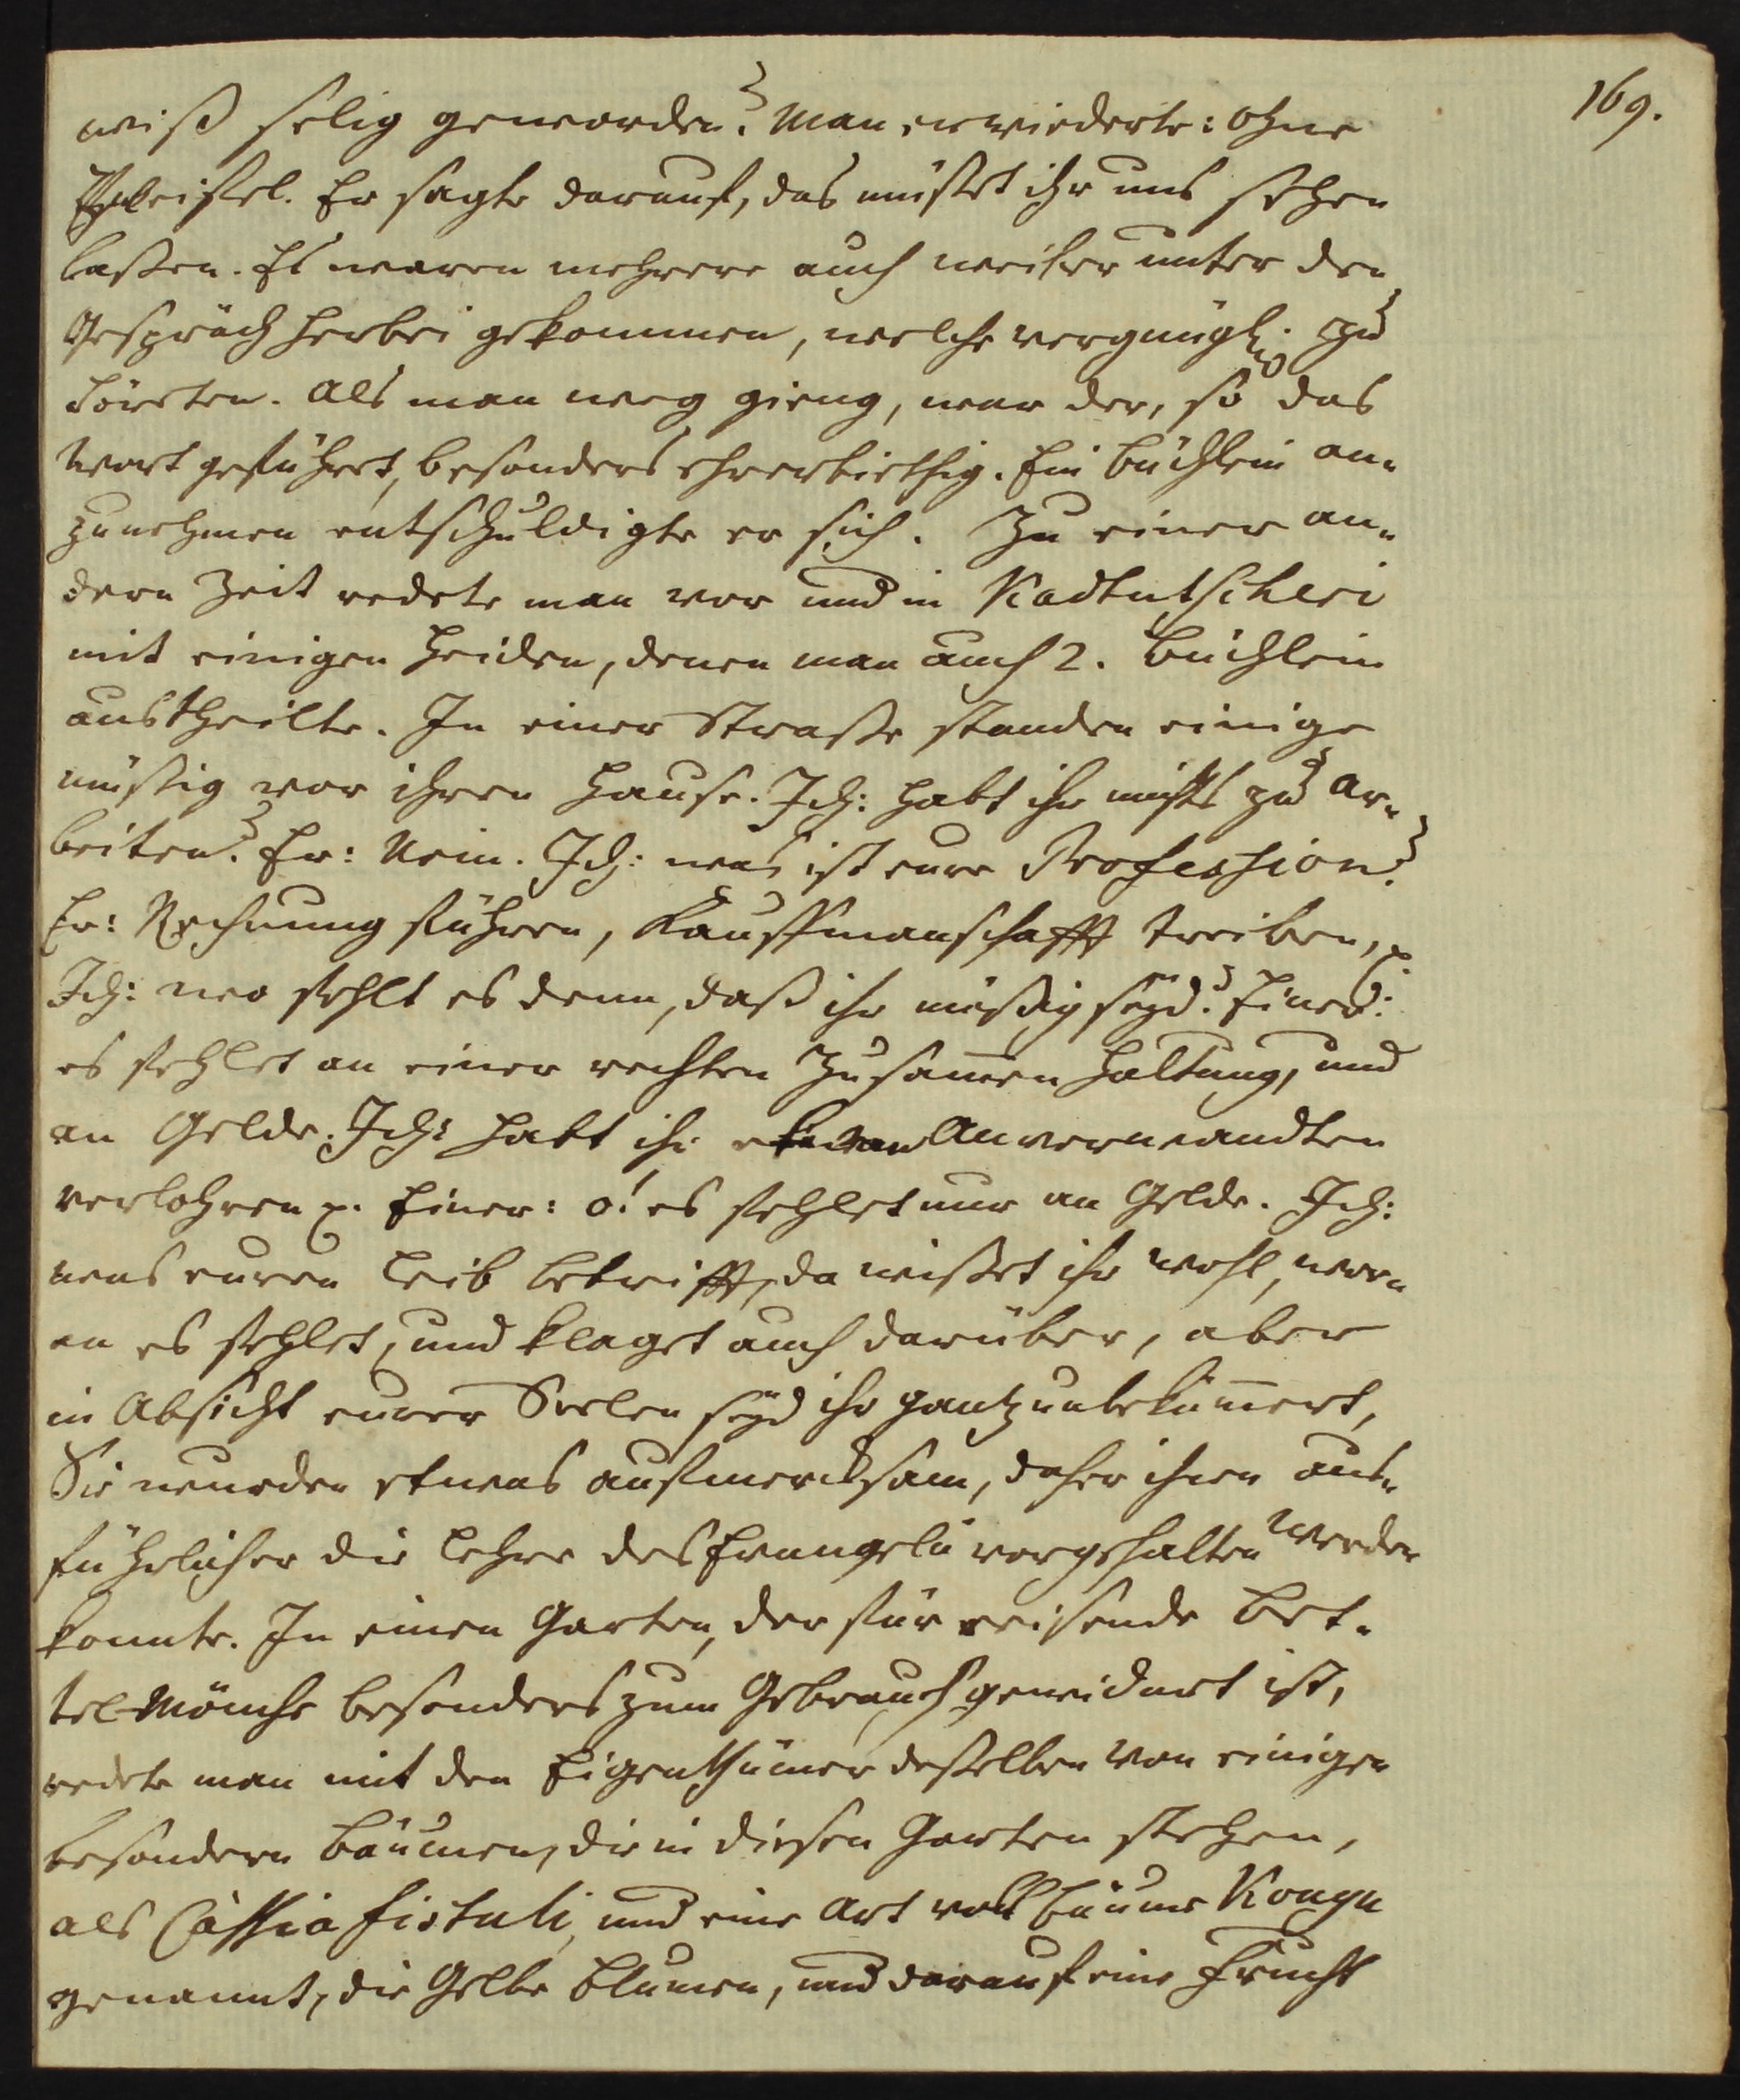 169.
wiß selig geworden? Man erwiederte: Ohne
Zweifel. Er sagte darauf, das müßet ihr uns sehen
laßen. Es waren mehrere auch weiber unter den
Gespräch herbei gekommen, welche vergnügl. zu
hörten. Als man weg gieng, war der, so das
Wort geführet, besonders ehrerbiethig. Ein büchlein an-
zunehmen entschuldigte er sich. Zu einer an-
dern Zeit redete man vor und in Kadtutscheri
mit einigen Heiden, denen man auch 2. büchlein
austheilte. In einer Straße standen einige
müßig vor ihren Hause. Ich: habt ihr nichts zu ar-
beiten? Er: Nein. Ich: was ist eure Profession?
Er: Rechnung führen, Kauffmanschafft treiben, p.
Ich: wo fehlt es denn, daß ihr müßig seyd? Einer:
es fehlet an einer rechten Zusamen haltung, und
an Gelde. Ich: habt ihr etwan Anverwandten
verlohren p. Einer: o! es fehlet nur an Gelde. Ich:
was euren Leib betrifft, da wißet ihr wohl, wor-
an es fehlet, und klaget auch darüber, aber
in Absicht eurer Seelen seyd ihr gantz unbekümert,
Sie wurden etwas aufmercksam, daher ihnen aus-
führlicher die Lehre des Evangelii vorgehalten werden
konnte. In einen Garten, der für reisende Bet-
tel-Mönche besonders zum Gebrauch gewidmet ist,
redete man mit den Eigenthümer deßelben von einigen
besondern bäumen, die in diesen Garten stehen,
als Cassia fistuli, und eine Art von bäume Kongu
genannt, die Gelbe blumen, und darauf eine Frucht